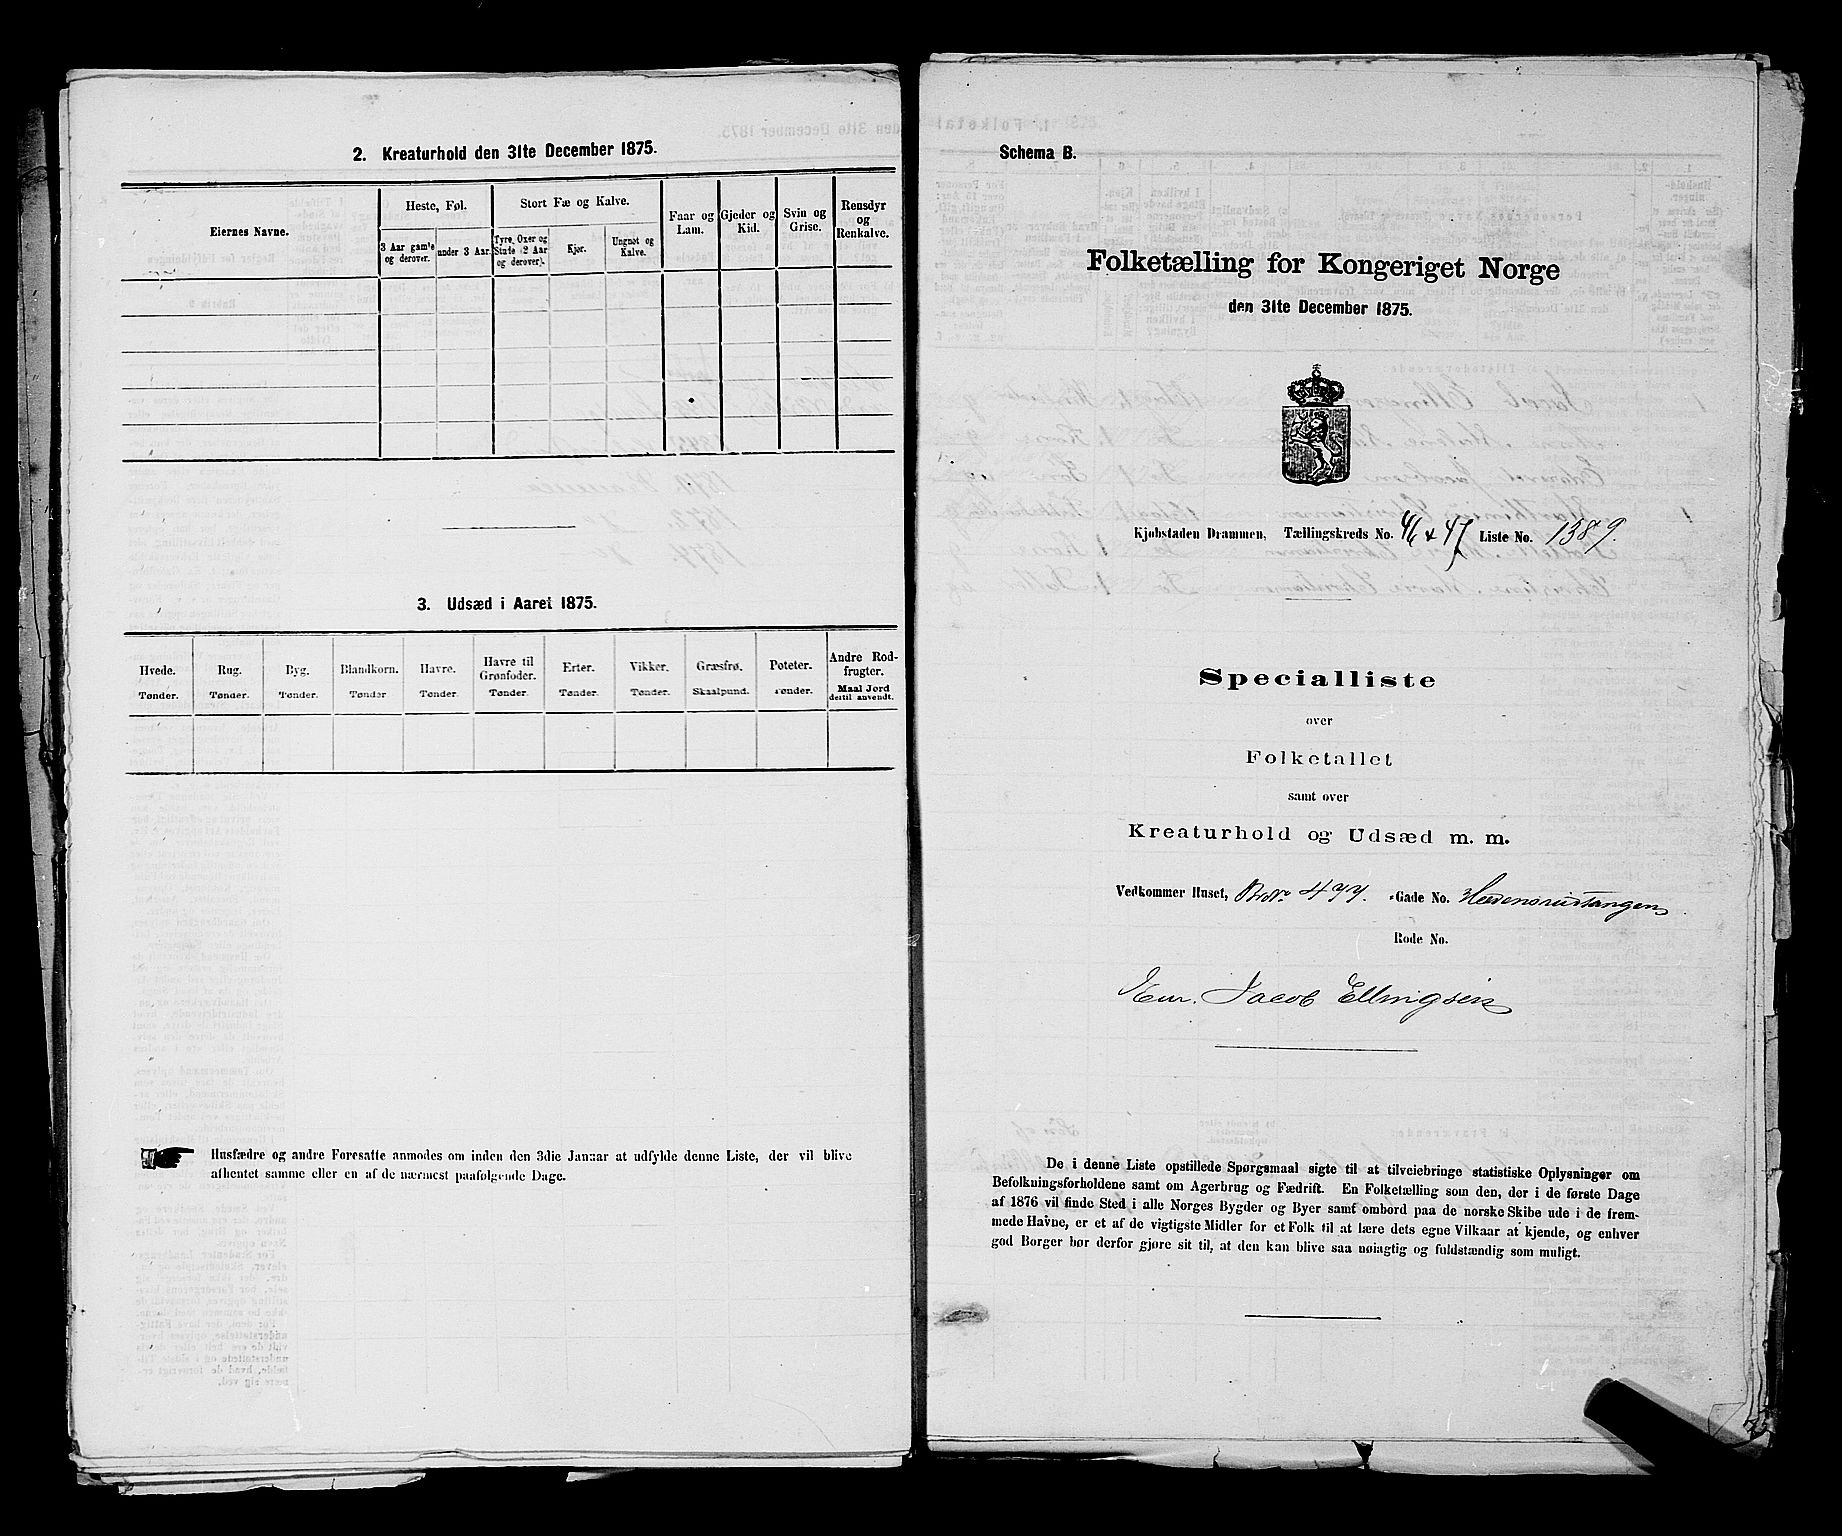 2. Kreaturhold den 31te December 1875.
Eiernes Navne.
Heste, Føl.
Stort Fæ og Kalve.
Faar og Lam.
Gjeder og Kid.
Svin og Grise.
Rensdyr og Renkalve.
3 Aar gamle og derover.
under 3 Aar.
Tyre, Oxer og Stude (2 Aar og derover).
Kjør.
Ungnøt og Kalve.
3. Udsæd i Aaret 1875.
Hvede. Rug. Byg. Blandkorn. Havre. Havre til Grønfoder. Erter. Vikker. Græsfrø. Poteter. Andre Rodfrugter.
Tønder. Tønder. Tønder. Tønder Tønder. Tønder. Tønder. Tønder. Skaalpund. Tønder. Maal Jord dertil anvendt.
Husfædre og andre Foresatte anmodes om inden den 3die Januar at udfylde denne Liste, der vil blive
afhentet samme eller en af de nærmest paafølgende Dage.
Schema B.
Folketælling for Kongeriget Norge
den 31te December 1875.
Kjøbstaden Drammen, Tællingskreds No. 46 & 47 Liste No. 1389.
Specialliste
over
Folketallet
samt over
Kreaturhold og Udsæd m. m.
Vedkommer Huset, BrNr. 477. -Gade No. Hedensrudtangen
Rode No.
Eier. Jacob Ellingsen
De i denne Liste opstillede Spørgsmaal sigte til at tilveiebringe statistiske Oplysninger om
Befolkningsforholdene samt om Agerbrug og Fædrift. En Folketælling som den, der i de første Dage
af 1876 vil finde Sted i alle Norges Bygder og Byer samt ombord paa de norske Skibe ude i de frem-
mede Havne, er et af de vigtigste Midler for et Folk til at lære dets egne Vilkaar at kjende, og enhver
god Borger bør derfor gjøre sit til, at den kan blive saa nøiagtig og fuldstændig som muligt.